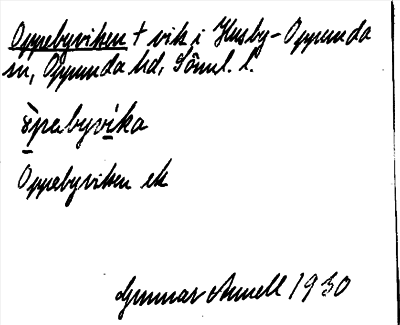 Oppebyviken + vik i Husby-Oppunda
sn, Oppunda hd, Söml. l.
åpabyvika
Oppebyviken ek
Gunnar Arnell 1930